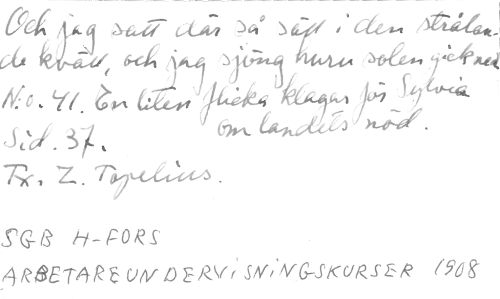 Och jag satt där så sätt i den strålan-
de kväll, och jag sjöng huru solen gick ned.
N:o. 41. En liten flicka klagar för Sylvia
om landets nöd.
Sid. 37.
Tx. Z. Topelius.
SGB H-FORS
ARBETAREUNDERVISNINGSKURSER 1908